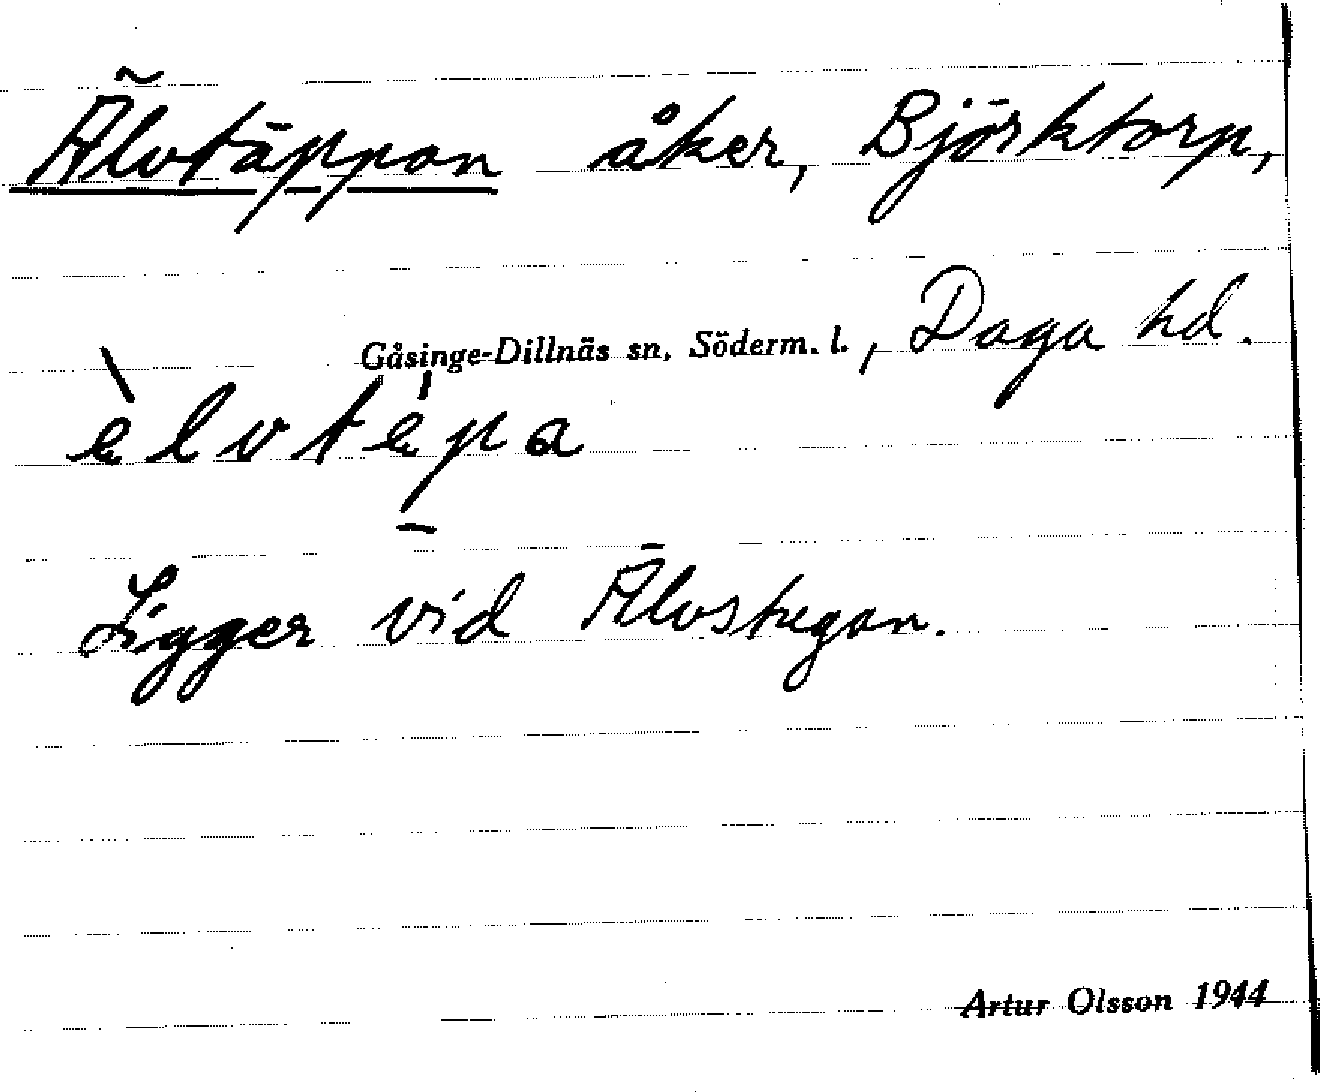 Älvtäppan åker, Björktorp,
Gåsinge-Dillnäs sn, Söderm. l., Daga hd.
ὲlvtépa
Ligger vid Älvstugan.
Artur Olsson 1944